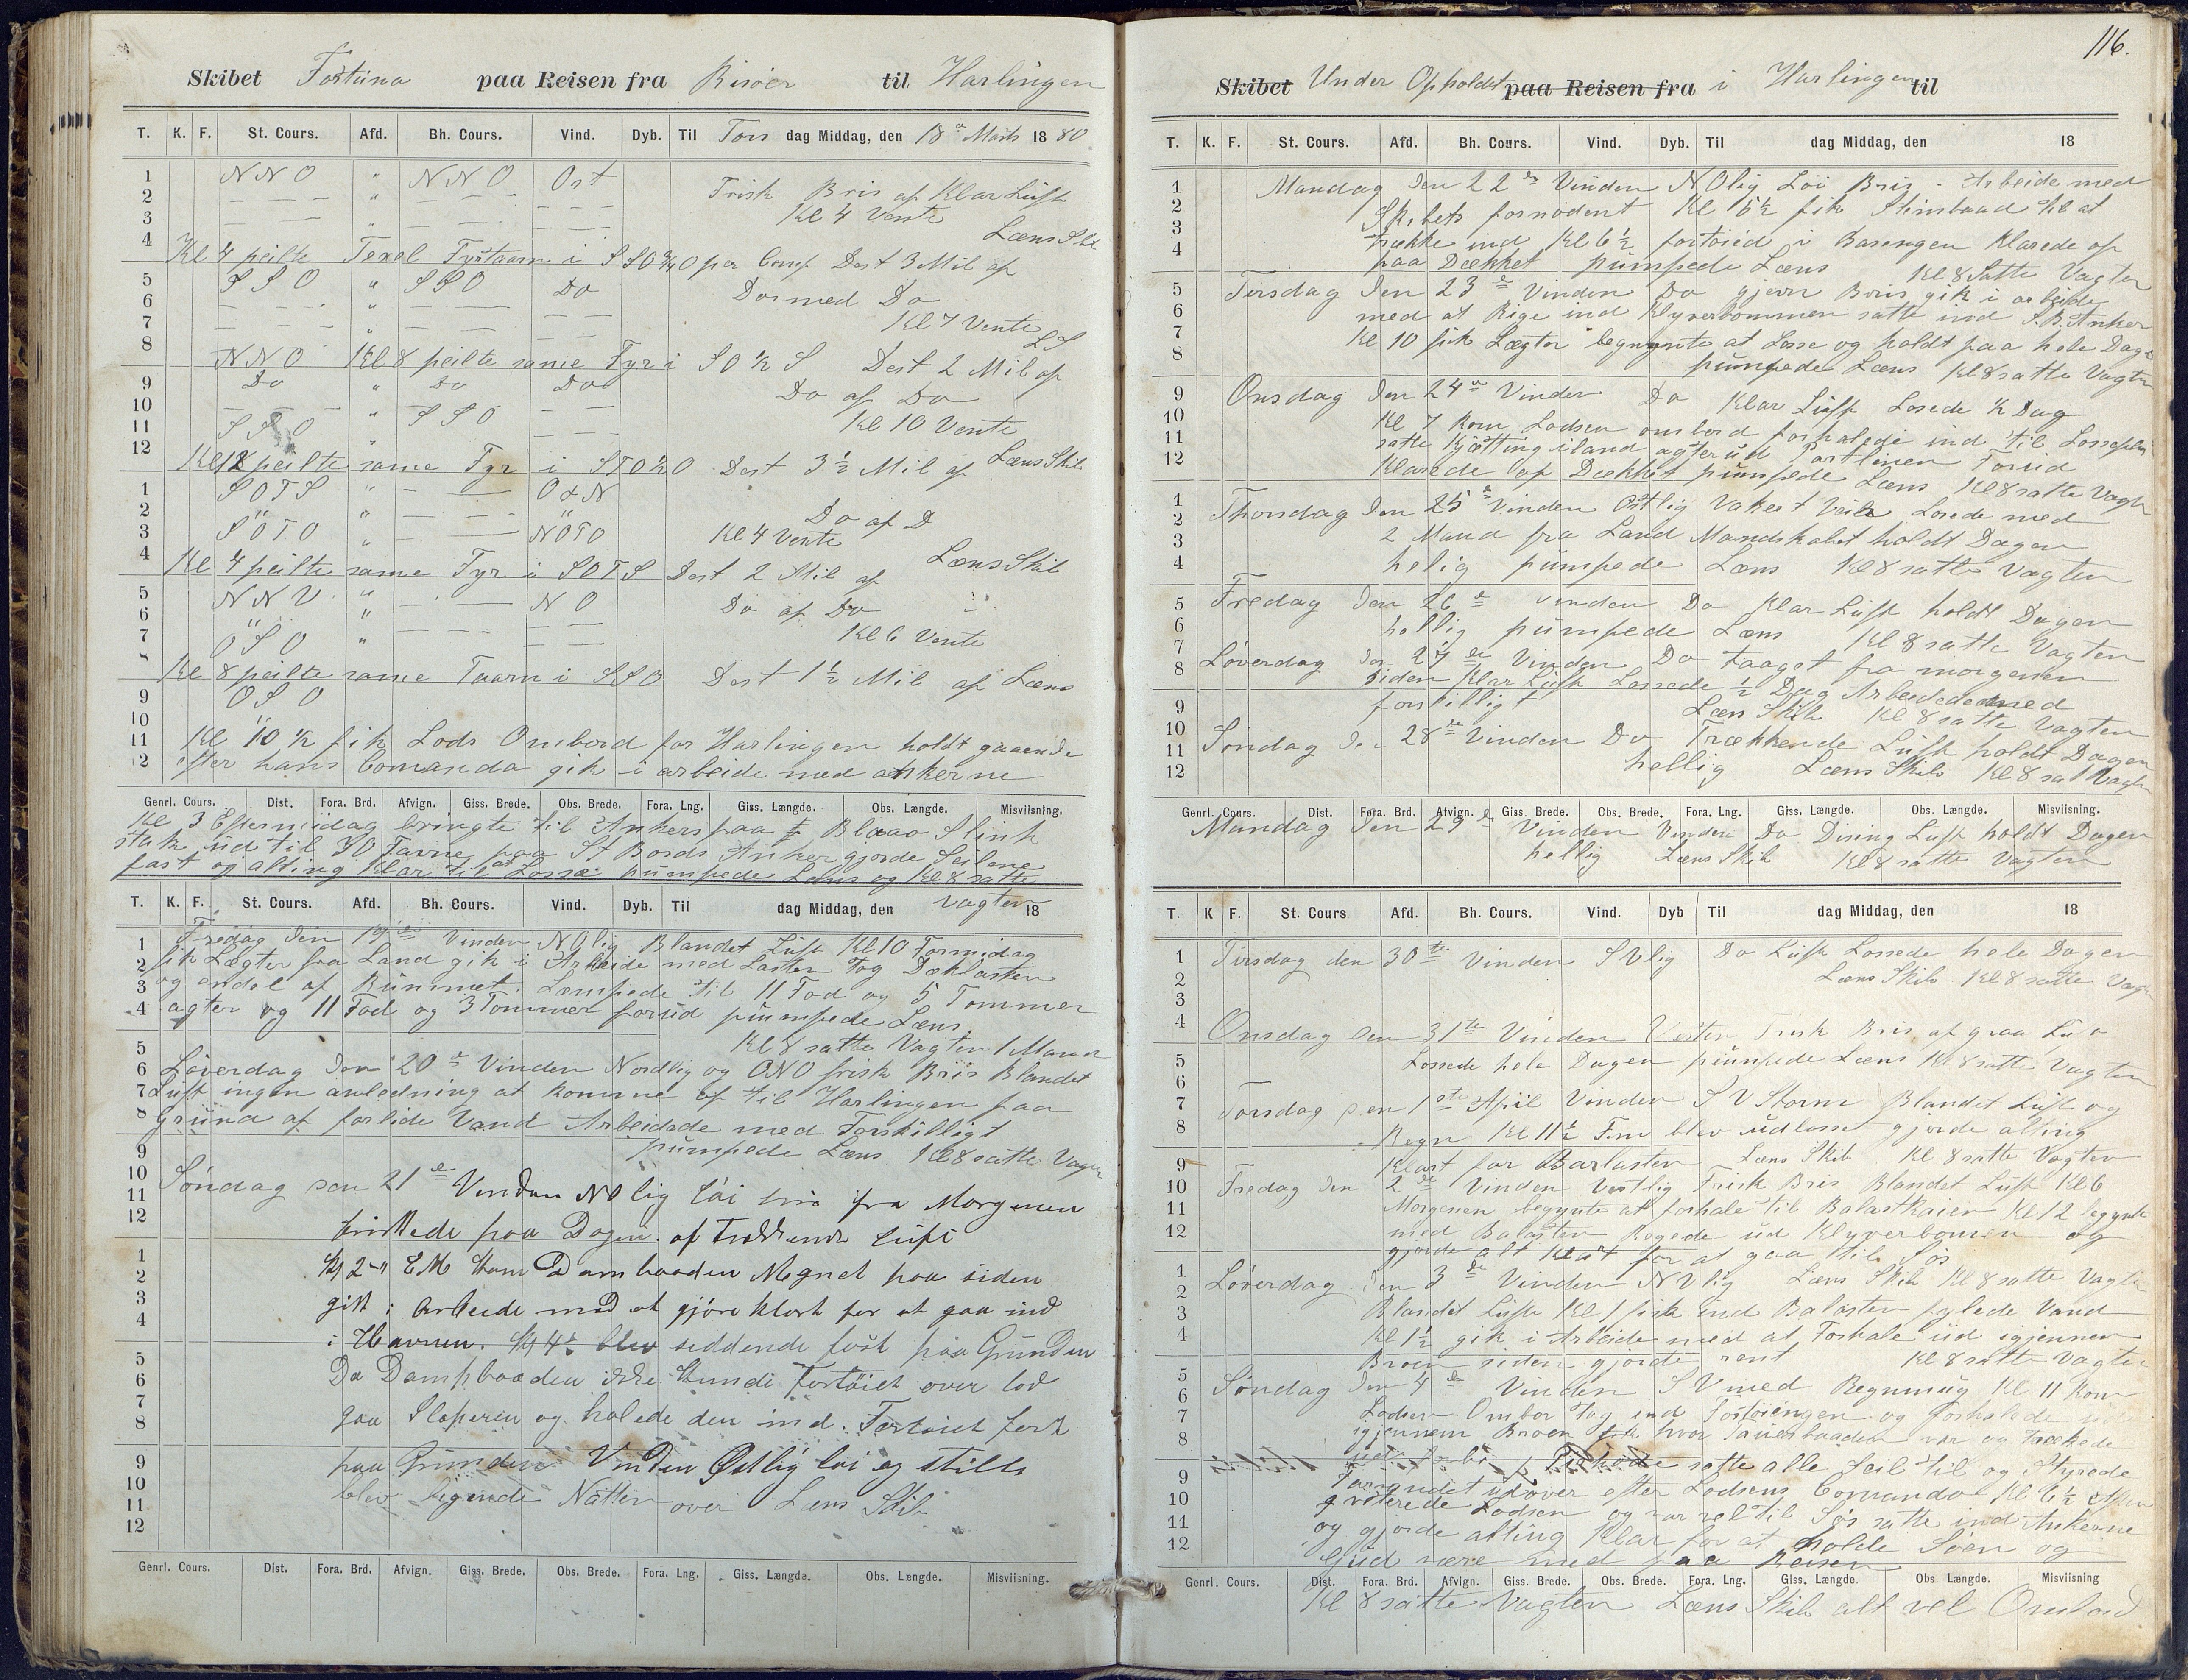 Skibet Fortuna paa Reisen fra Risöer til Harlingen
T. K. F. St. Cours. Afd. Bh. Cours. Vind. Dyb. Til Tors dag Middag, den 18de Marts 1880
1 NNO " NNO Ost
2 Frisk Bris af Klar Luft
3 Kl 4 Vente
4 Læns Skib
Kl 4 peilte Texel Fyrtaarn i SSO 3/4 O per Comp Dest 3 Mil af
5 SSO " SSO Do Dos med Do
6
7 Kl 7 Vente
8 LS
NNO Kl 8 peilte same Fyr i SO 1/2 S Dest 2 Mil af
9 Do " Do Do Do af Do
10 " SSO
11 Kl 10 Vente
12 Læns Skib
Kl 12 peilte same Fyr i STO 1/2 O Dest 3 1/2 Mil af
1 SOTS " O & N
2 " Do af D
3 SOTO " NOTO Kl 4 Vente
4 Læns Skib
Kl 4 peilte same Fyr i SOTS Dest 2 Mil af
5 NNV " NO Do af Do
6 "
7 OSO " Kl 6 Vente
Kl 8 peilte same Taarn i SSO Dest 1 1/2 Mil af Læns
9 OSO
10
11 Kl 10 1/2 fik Lods Ombord for Harlingen holdt gaaende
12 efter hans Comando gik i arbeide med ankerne
Genrl. Cours. Dist. Fora. Brd. Afvign. Giss. Brede. Obs. Brede. Fora. Lng. Giss. Længde. Obs. Længde. Misviisning.
Kl 3 Eftermidag bringte til Ankers paa Blaao Slink
stak ud til 30 Favne paa St Bords Anker gjorde Seilene
fast og alting Klar til at Losse pumpede Læns og Kl 8 satte
Vagten
T. K. F. St. Cours. Afd. Bh. Cours. Vind. Dyb. Til dag Middag, den 18
1 Fredag den 19de Vinden NOlig Blandet Luft Kl 10 Formidag
2 fik Lægter fra Land gik i Arbeide med Lasten tog Dæklasten
3 og endel af Rummet. Læmpede til 11 Fod og 5 Tommer
4 agter og 11 Fod og 3 Tommer forud pumpede Læns
5 Kl 8 satte Vagten 1 Mand
6 Löverdag den 20de Vinden Nordlig og ONO frisk Bris Blandet
7 Luft ingen anledning at komme op til Harlingen paa
8 Grund af forlide Vand Arbeidede med Forskilligt
9 pumpede Læns Kl 8 satte Vagten
10 Söndag den 21de Vinden NOlig löi bris fra Morgenen
11
12 friskede paa Dagen af Trækkende Luft
1 Kl 2 " EM kom Dambaaden Magnet paa siden
2
3 gik i Arbeide med at gjöre klart for at gaa ind
4 i Havnen. Kl 4 1/2 blev siddende fast paa Grunden
5
6 Da Dampbaaden ikke kunde Fortöiet over lod
7 gaa Sloperen og halede den ind. Fortöiet fast
8
9 paa Grunden Vinden Östlig löi og stille
10 blev ligende Natten over Læns Skib
11
12
Genrl. Cours. Dist. Fora. Brd. Afvign. Giss. Brede. Obs. Brede. Fora. Lng. Giss. Længde. Obs. Længde. Misviisning.
116.
Skibet Under Opholdet paa Reisen fra i Harlingen til
T. K. F. St. Cours. Afd. Bh. Cours. Vind. Dyb. Til dag Middag, den 18
1 Mandag den 22de Vinden NOlig Löi Bris. Arbeide med
2 Skibets fornödent Kl 5 1/2 fik Stimbaad til at
3 trække ind Kl 6 1/2 fortöied i Basengen Klarede op
4 paa Dækket pumpede Læns Kl 8 Satte Vagten
5 Tirsdag den 23de Vinden Do gjevn Bris gik i arbeide
6 med at Rige ind Klyverbommen satte ind S.B. Anker
7 Kl 10 fik Lægter begynnte at Losse og holdt paa hele Dage
8 pumpede Læns Kl 8 satte Vagten
9 Onsdag den 24de Vinden Do Klar Luft Losede 1/2 Dag
10 Kl 7 kom Lodsen ombord forhalede ind til Losseplas
11 satte Kjætting iland agterud Portlinen Forud
12 Klarede op Dækket pumpede Læns Kl 8 satte Vagten
1 Thorsdag den 25de Vinden Ostlig Vakert Veir Losede med
2 2 Mand fra Land Mandskabet holdt Dagen
3
4 helig pumpede Læns Kl 8 satte Vagten
5 Fredag den 26de Vinden Do Klar Luft holdt Dagen
6 hellig pumpede Læns Kl 8 satte Vagten
7 Löverdag den 27de Vinden Do Taaget fra morgenen
8 siden Klar Luft Lossede 1/2 Dag Arbeidede med
9 forskilligt Læns Skib Kl 8 satte Vagten
10 Söndag den 28de Vinden Do Trækkende Luft holdt Dagen
11
12 hellig Læns Skib Kl 8 sat Vagten
Genrl. Cours. Dist. Fora. Brd. Afvign. Giss. Brede. Obs. Brede. Fora. Lng. Giss. Længde. Obs. Længde. Misviisning.
Mandag den 29de Vinden Vinden Do Dising Luft holdt Dagen
hellig Læns Skib Kl 8 satte Vagten
T. K F. St. Cours Afd. Bh. Cours. Vind. Dyb Til dag Middag, den 18
1 Tirsdag den 30te Vinden SVlig Do Luft Lossede hele Dagen
2 Læns Skib Kl 8 satte Vagten
3
4 Onsdag den 31te Vinden Vesten Frisk Bris af graa Luft
5 Lossede hele Dagen pumpede Læns Kl 8 satte Vagten
6
7 Torsdag den 1ste April Vinden SV Storm Blandet Luft og
8 Regn Kl 11 1/2 Fm blev udlosset gjorde alting
9 Klart for Barlasten Læns Skib Kl 8 satte Vagten
10 Fredag den 2de Vinden Vestlig Frisk Bris Blandet Luft Kl 6
11 Morgenen begynte at forhale til Balastkaien Kl 12 begynte
12 med Balasten Rogede ud Klyverbomen og
gjorde alt Klart for at gaa til Sös
1 Löverdag den 3de Vinden NVlig Læns Skib Kl 8 satte Vagten
2
3 Blandet Luft Kl 1 fik ind Balasten fylede Vand
4 Kl 1 1/2 gik i Arbeide med at Forhale ud igjennem
Broen siden gjorde rent Kl 8 satte Vagten
5 Söndag den 4de Vinden SV med Regnmug Kl 11 kom
6 Lodsen Ombor tog ind fortöiengen og forhalede ud
7 igjennem Broen hvor Tauerbaaden var og trækede
8 satte alle Seil til og Styrede
9 udover efter Lodsens Comando Kl 6 1/2 Aften
10 qviterede Lodsen og var vel til Sös satte ind Ankerne
11 og gjorde alting Klar for at Holde Söen og
12 Gud være med paa Reisen
Genrl. Cours. Dist. Fora. Brd. Afvign. Giss. Brede. Obs. Brede. Fora. Lng. Giss. Længde. Obs Længde. Misviisning
Kl 8 satte Vagten Læns Skib alt vel Ombord